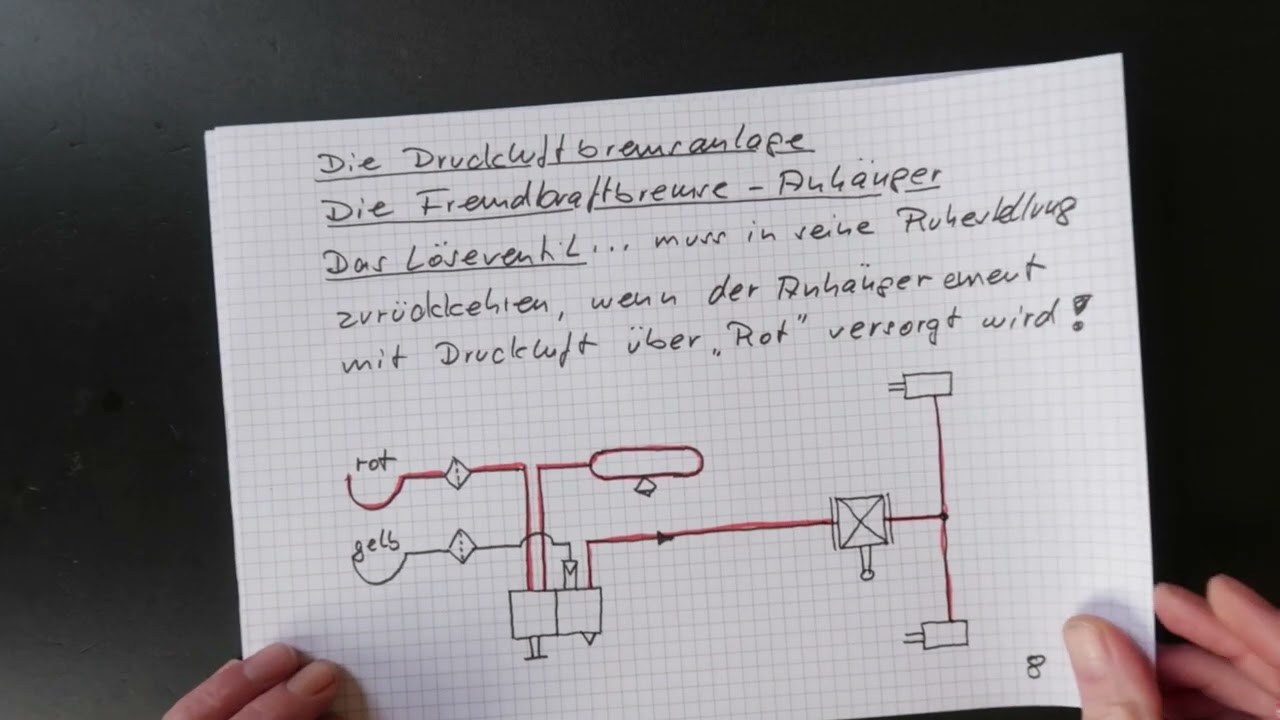 Die Druckluftbremsanlage
Die Fremdkraftbremse - Anhänger
Das Löseventil... muss in seine Ruhestellung
zurückkehren, wenn der Anhänger erneut
mit Druckluft über „Rot" versorgt wird!
rot
gelb
8